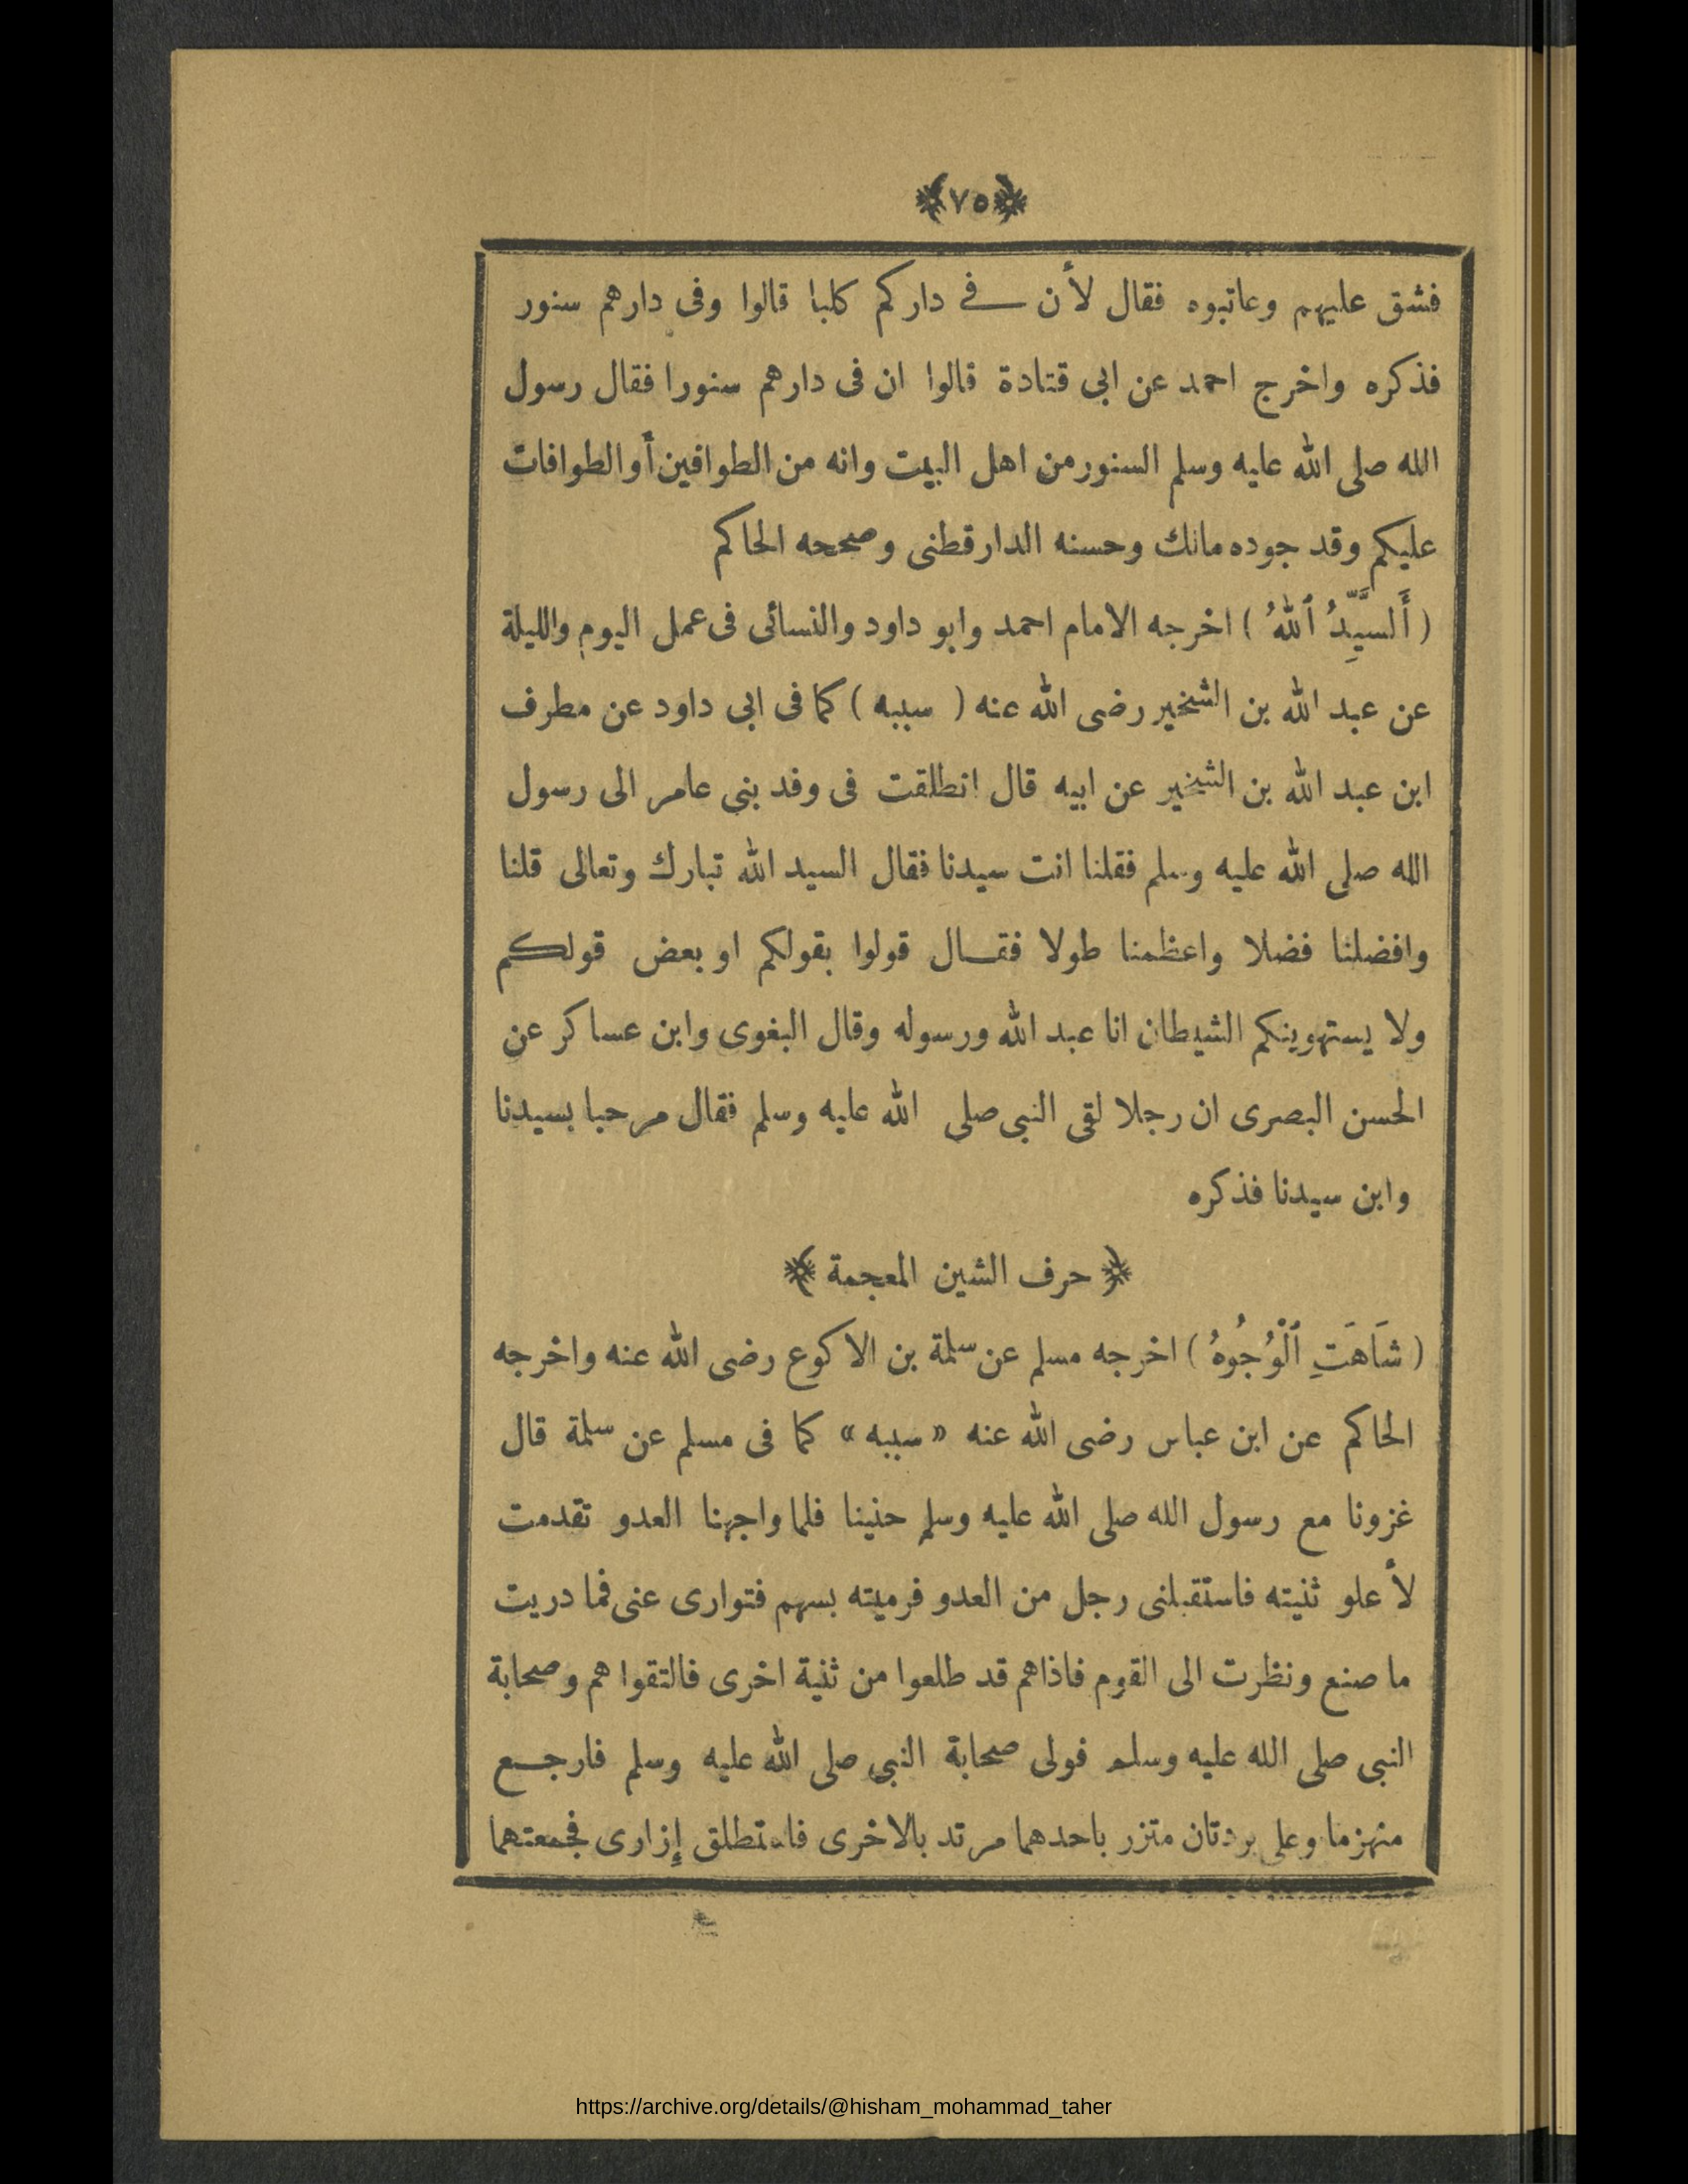 ﴿٧٥﴾
فشق عليهم وعاتبوه فقال لأن في داركم كلبا قالوا وفى دارهم سنور
فذكره واخرج احمد عن ابى قتادة قالوا ان فى دارهم سنورا فقال رسول
الله صلى الله عليه وسلم السنور من اهل البيت وانه من الطوافين أو الطوافات
عليكم وقد جوده مالك وحسنه الدارقطنى وصححه الحاكم
( أَلسَّيِّدُ ٱللهُ ) اخرجه الامام احمد وابو داود والنسائى فى عمل اليوم والليلة
عن عبد الله بن الشخير رضى الله عنه ( سببه ) كما فى ابى داود عن مطرف
ابن عبد الله بن الشخير عن ابيه قال انطلقت فى وفد بنى عامر الى رسول
الله صلى الله عليه وسلم فقلنا انت سيدنا فقال السيد الله تبارك وتعالى قلنا
وافضلنا فضلا واعظمنا طولا فقال قولوا بقولكم او بعض قولكم
ولا يستهوينكم الشيطان انا عبد الله ورسوله وقال البغوى وابن عساكر عن
الحسن البصرى ان رجلا لقى النبى صلى الله عليه وسلم فقال مرحبا بسيدنا
وابن سيدنا فذكره
﴿ حرف الشين المعجمة ﴾
( شَاهَتِ ٱلْوُجُوهُ ) اخرجه مسلم عن سلمة بن الاكوع رضى الله عنه واخرجه
الحاكم عن ابن عباس رضى الله عنه « سببه » كما فى مسلم عن سلمة قال
غزونا مع رسول الله صلى الله عليه وسلم حنينا فلما واجهنا العدو تقدمت
لأعلو ثنيته فاستقبلنى رجل من العدو فرميته بسهم فتوارى عنى فما دريت
ما صنع ونظرت الى القوم فاذاهم قد طلعوا من ثنية اخرى فالتقوا هم وصحابة
النبى صلى الله عليه وسلم فولى صحابة النبى صلى الله عليه وسلم فارجع
منهزما وعلى بردتان متزر باحدهما مرتد بالاخرى فاستطلق إزارى فجمعتهما
https://archive.org/details/@hisham_mohammad_taher